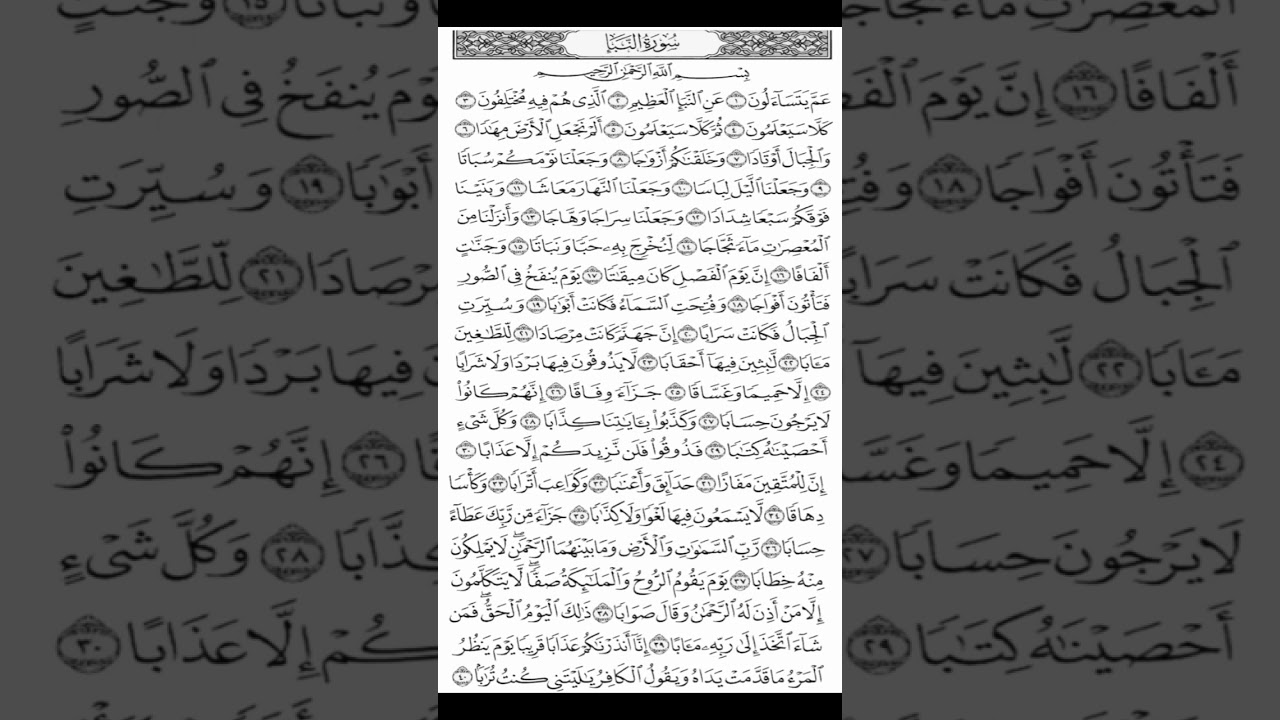 سُورَةُ النَّبَإِ
بِسْمِ ٱللَّهِ ٱلرَّحْمَٰنِ ٱلرَّحِيمِ
عَمَّ يَتَسَآءَلُونَ ١ عَنِ ٱلنَّبَإِ ٱلْعَظِيمِ ٢ ٱلَّذِى هُمْ فِيهِ مُخْتَلِفُونَ ٣
كَلَّا سَيَعْلَمُونَ ٤ ثُمَّ كَلَّا سَيَعْلَمُونَ ٥ أَلَمْ نَجْعَلِ ٱلْأَرْضَ مِهَٰدًا ٦
وَٱلْجِبَالَ أَوْتَادًا ٧ وَخَلَقْنَٰكُمْ أَزْوَٰجًا ٨ وَجَعَلْنَا نَوْمَكُمْ سُبَاتًا
٩ وَجَعَلْنَا ٱلَّيْلَ لِبَاسًا ١٠ وَجَعَلْنَا ٱلنَّهَارَ مَعَاشًا ١١ وَبَنَيْنَا
فَوْقَكُمْ سَبْعًا شِدَادًا ١٢ وَجَعَلْنَا سِرَاجًا وَهَّاجًا ١٣ وَأَنزَلْنَا مِنَ
ٱلْمُعْصِرَٰتِ مَآءً ثَجَّاجًا ١٤ لِّنُخْرِجَ بِهِۦ حَبًّا وَنَبَاتًا ١٥ وَجَنَّٰتٍ
أَلْفَافًا ١٦ إِنَّ يَوْمَ ٱلْفَصْلِ كَانَ مِيقَٰتًا ١٧ يَوْمَ يُنفَخُ فِى ٱلصُّورِ
فَتَأْتُونَ أَفْوَاجًا ١٨ وَفُتِحَتِ ٱلسَّمَآءُ فَكَانَتْ أَبْوَٰبًا ١٩ وَسُيِّرَتِ
ٱلْجِبَالُ فَكَانَتْ سَرَابًا ٢٠ إِنَّ جَهَنَّمَ كَانَتْ مِرْصَادًا ٢١ لِّلطَّٰغِينَ
مَـَٔابًا ٢٢ لَّٰبِثِينَ فِيهَآ أَحْقَابًا ٢٣ لَّا يَذُوقُونَ فِيهَا بَرْدًا وَلَا شَرَابًا
٢٤ إِلَّا حَمِيمًا وَغَسَّاقًا ٢٥ جَزَآءً وِفَاقًا ٢٦ إِنَّهُمْ كَانُوا۟
لَا يَرْجُونَ حِسَابًا ٢٧ وَكَذَّبُوا۟ بِـَٔايَٰتِنَا كِذَّابًا ٢٨ وَكُلَّ شَىْءٍ
أَحْصَيْنَٰهُ كِتَٰبًا ٢٩ فَذُوقُوا۟ فَلَن نَّزِيدَكُمْ إِلَّا عَذَابًا ٣٠
إِنَّ لِلْمُتَّقِينَ مَفَازًا ٣١ حَدَآئِقَ وَأَعْنَٰبًا ٣٢ وَكَوَاعِبَ أَتْرَابًا ٣٣ وَكَأْسًا
دِهَاقًا ٣٤ لَّا يَسْمَعُونَ فِيهَا لَغْوًا وَلَا كِذَّٰبًا ٣٥ جَزَآءً مِّن رَّبِّكَ عَطَآءً
حِسَابًا ٣٦ رَّبِّ ٱلسَّمَٰوَٰتِ وَٱلْأَرْضِ وَمَا بَيْنَهُمَا ٱلرَّحْمَٰنِ ۖ لَا يَمْلِكُونَ
مِنْهُ خِطَابًا ٣٧ يَوْمَ يَقُومُ ٱلرُّوحُ وَٱلْمَلَٰٓئِكَةُ صَفًّا ۖ لَّا يَتَكَلَّمُونَ
إِلَّا مَنْ أَذِنَ لَهُ ٱلرَّحْمَٰنُ وَقَالَ صَوَابًا ٣٨ ذَٰلِكَ ٱلْيَوْمُ ٱلْحَقُّ ۖ فَمَن
شَآءَ ٱتَّخَذَ إِلَىٰ رَبِّهِۦ مَـَٔابًا ٣٩ إِنَّآ أَنذَرْنَٰكُمْ عَذَابًا قَرِيبًا يَوْمَ يَنظُرُ
ٱلْمَرْءُ مَا قَدَّمَتْ يَدَاهُ وَيَقُولُ ٱلْكَافِرُ يَٰلَيْتَنِى كُنتُ تُرَٰبًۢا ٤٠